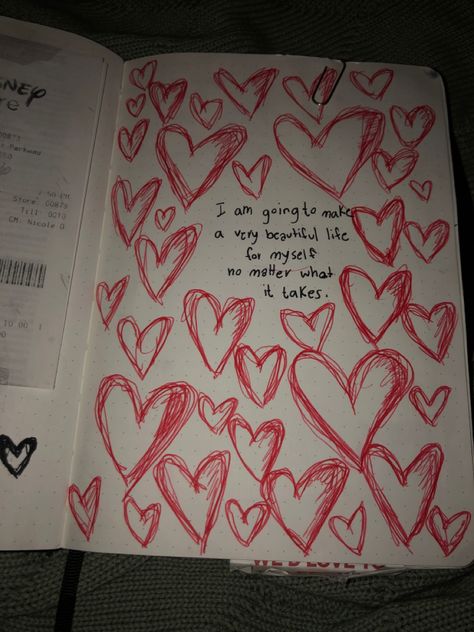 SNEY
re
00873
Parkway
Store: 00873
Till: 0010
CM: Nicole O
I am going to make
a very beautiful life
for myself
no matter what
it takes.
WE'D LOVE TO